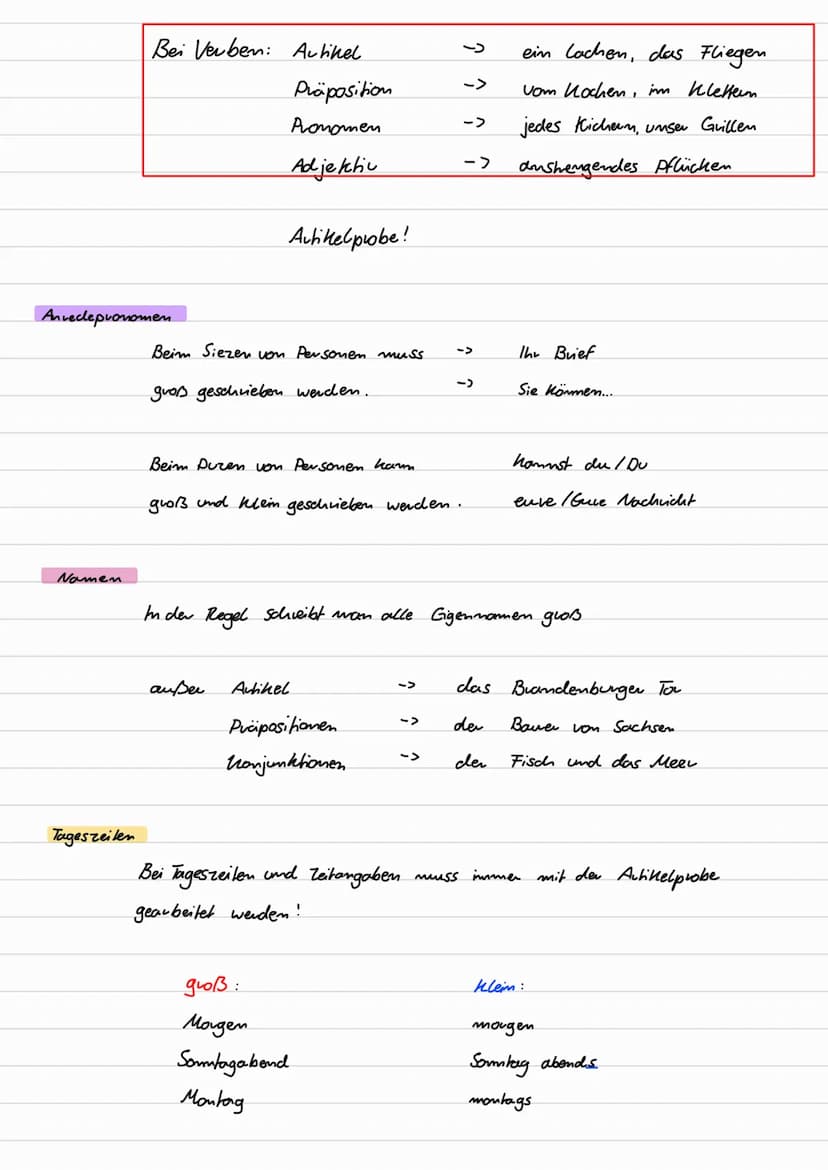 Bei Verben: Artikel -> ein Lachen, das Fliegen
Präposition -> vom Kochen, im Klettern
Pronomen -> jedes Kichern, unser Grillen
Adjektiv -> anstrengendes Pflücken
Artikelprobe!
Anredepronomen
Beim Siezen von Personen muss -> Ihr Brief
groß geschrieben werden. -> Sie können...
Beim Duzen von Personen kann kannst du/Du
groß und klein geschrieben werden. eure/Eure Nachricht
Namen
In der Regel schreibt man alle Eigennamen groß
außer Artikel -> das Brandenburger Tor
Präpositionen -> der Bauer von Sachsen
Konjunktionen -> der Fisch und das Meer
Tageszeiten
Bei Tageszeiten und Zeitangaben muss immer mit der Artikelprobe
gearbeitet werden!
groß: klein:
Morgen morgen
Sonntagabend Sonntag abends
Montag montags